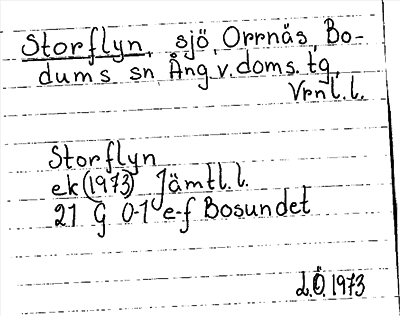 Storflyn, sjö, Orrnäs, Bo-
dums sn, Ång. v. doms. tg,
Vrnl. l.
Storflyn
ek (1973) Jämtl. l.
21 G 0-1 e-f Bosundet
L.Ö. 1973